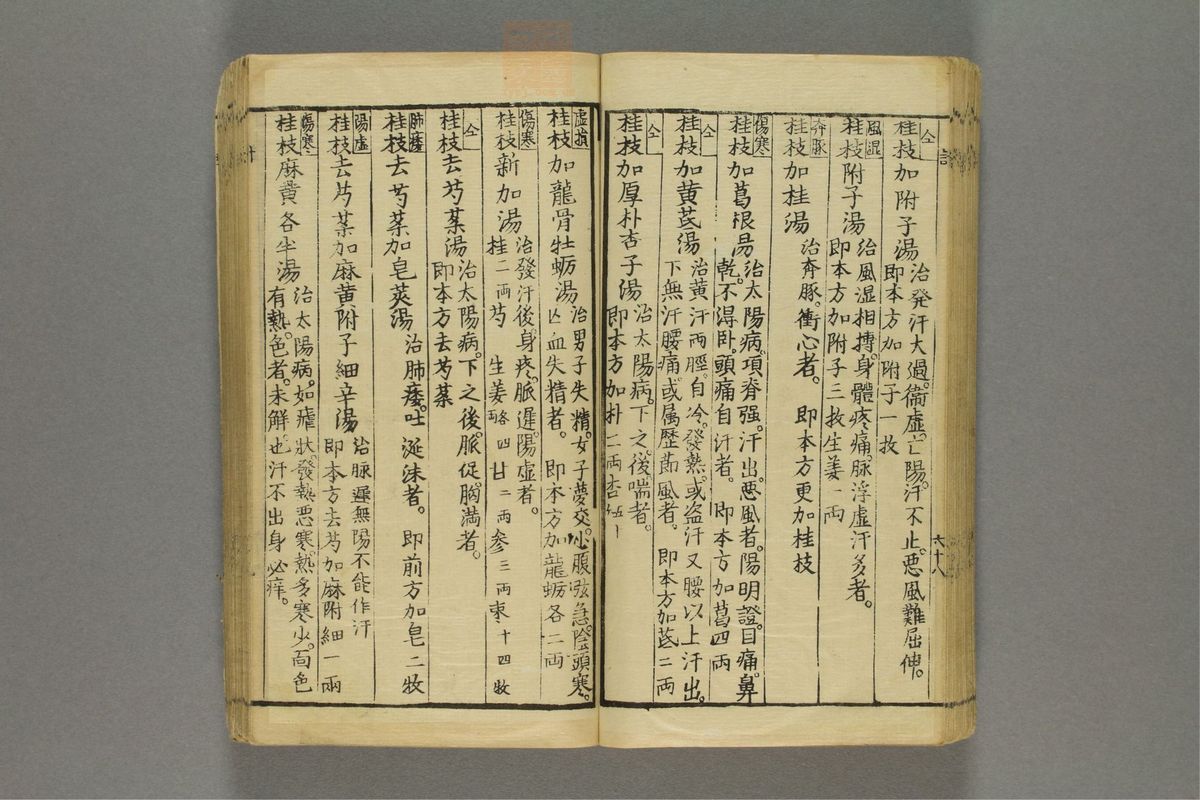 仝
桂枝加附子湯
治発汗大過。衞虛。亡陽。汗不止。悪風難屈伸。
即本方加附子一枚
六十八
風湿
桂枝附子湯
治風湿相摶。身體疼痛。脉浮虛汗多者。
即本方加附子三枚生姜一両
奔豚
桂枝加桂湯
治奔豚。衝心者。 即本方更加桂枝
傷寒
桂枝加葛根湯
治太陽病。項脊强。汗出。悪風者。陽明證。目痛。鼻
乾。不淂卧。頭痛自汗者。 即本方加葛四両
仝
桂枝加黄芪湯
治黄汗両脛。自冷。發熱。或盗汗又腰以上汗出。
下無汗腰痛。或属歴節風者。 即本方加芪二両
仝
桂枝加厚朴杏子湯
治太陽病。下之。後喘者。
即本方加朴二両杏五十
虛損
桂枝加龍骨牡蛎湯
治男子失精。女子夢交。小腹弦急。陰頭寒。
亡血失精者。 即本方加龍蛎各二両
傷寒
桂枝新加湯
治發汗後。身疼。脈遲。陽虛者。
桂二両芍 生姜各四両甘二両參三両棗十四牧
仝
桂枝去芍薬湯
治太陽病。下之後。脈促。胸満者。
即本方去芍薬
肺痿
桂枝去芍薬加皂莢湯
治肺痿。吐涎沫者。 即前方加皂二牧
陽虛
桂枝去芍薬加麻黄附子細辛湯
治脉遲無陽不能作汗
即本方去芍加麻附細一兩
傷寒
桂枝麻黄各半湯
治太陽病。如瘧狀。發熱悪寒。熱多寒少。面色
有熱。色者。未解也。汗不出身必痒。